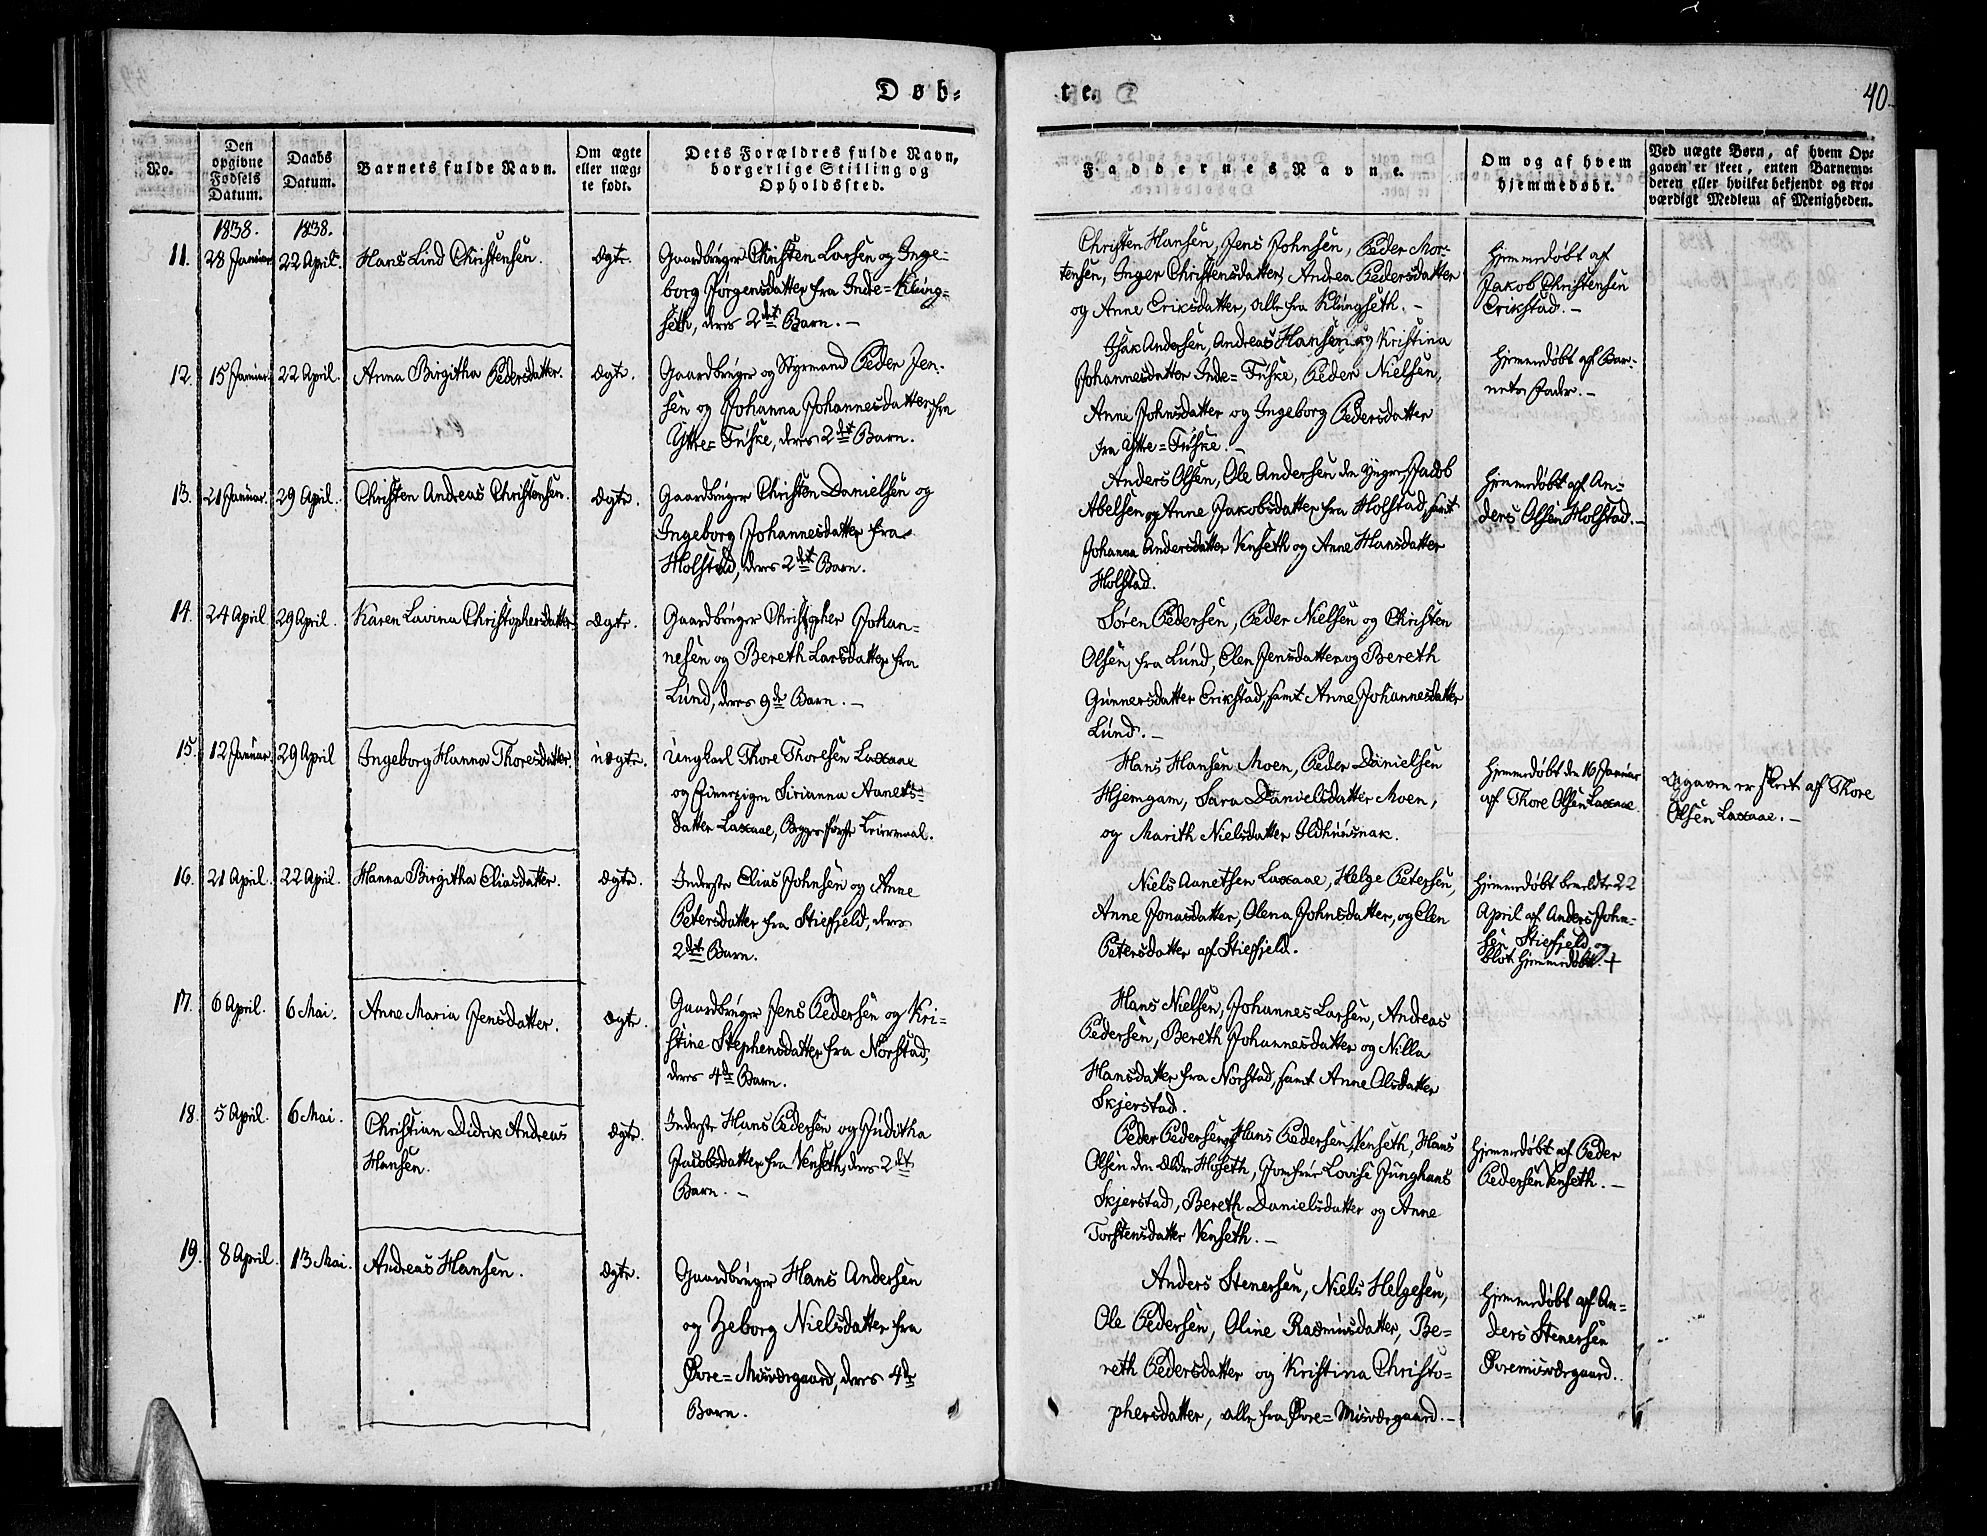 Døb-
te.
40
No.
Den
opgivne
Fødsels
Datum.
Daabs
Datum.
Barnets fulde Navn.
Om ægte
eller uæg-
te født.
Dets Forældres fulde Navn,
borgerlige Stilling og
Opholdssted.
Faddernes Navne.
Om og af hvem
hjemmedøbt.
Ved uægte Børn, af hvem Op-
gaven er skeet, enten Barnemo-
deren eller hvilket bekjendt og tro-
værdigt Medlem af Menigheden.
1838. 1838.
11. 28 Januar 22 April. Hans Lind Christensen. Ægte.
Gaardbruger Christen Larsen og Inge-
borg Jørgensdatter fra Inde=Klúng-
seth, deres 2det Barn. —
Christen Hansen, Jens Johnsen, Peder Mor-
tensen, Inger Christensdatter, Andrea Pedersdatter
og Anne Eriksdatter, alle fra Klúngseth. —
Hjemmedøbt af
Jakob Christensen
Erikstad. —
12. 15 Januar 22 April. Anna Birgitha Pedersdatter. Ægte.
Gaardbrúger og Styrmand Peder Jen-
sen og Johanna Johannesdatter fra
Ytte=Fúske, deres 2det Barn.
Isak Andersen, Andreas Hansen og Kristina
Johannesdatter Inde=Fúske, Peder Nielsen,
Anne Johnsdatter og Ingeborg Pedersdatter
fra Ytte=Fúske. —
Hjemmedøbt af Bar-
nets Fader. —
13. 21 Januar. 29 April. Christen Andreas Christensen. Ægte.
Gaardbrúger Christen Danielsen og
Ingeborg Johannesdatter fra
Holstad, deres 2det Barn.
Anders Olsen, Ole Andersen den yngre, Jacob
Abelsen og Anne Jakobsdatter fra Holstad, samt
Johanna Andersdatter Venseth og Anne Hansdatter
Holstad.
Hjemmedøbt af An-
ders Olsen Holstad. —
14. 24 April 29 April. Karen Lavina Christophersdatter Ægte.
Gaardbrúger Christopher Johan-
nesen og Bereth Larsdatter fra
Lúnd, deres 9de Barn. —
Søren Pedersen, Peder Nielsen og Christen
Olsen fra Lúnd, Elen Jensdatter og Bereth
Gúnnersdatter Erikstad, samt Anne Johannesdatter
Lúnd. —
15. 12 Januar 29 April Ingeborg Hanna Thoresdatter. uægte.
Ungkarl Thore Thoresen Laxaae
og Sirianna Aanets-
datter Laxaae, Begges første Leiermaal.
Hans Hansen Moen, Peder Danielsen
Hjemgam, Sara Danielsdatter Moen,
og Marith Nielsdatter Ildhúúsnak.
Hjemmedøbt den 16 Januar
af Thore Olsen Laxaae
Opgaven er skeet af Thore
Olsen Laxaae. —
16. 21 April. 22 April. Hanna Birgitha Eliasdatter. Ægte.
Inderste Elias Johnsen og Anne
Petersdatter fra Stiefjeld, deres
2det Barn.
Niels Aanetsen Laxaae, Helge Petersen,
Anne Jonasdatter, Olena Johnsdatter, og Elen
Petersdatter af Stiefjeld.
Hjemmedøbt bemeldte 22
April af Anders John-
sen Stiefjeld og
blot hjemmedøbt. +
17. 6 April. 6 Mai. Anne Maria Jensdatter. Ægte.
Gaardbrúger Jens Pedersen og Kri-
stine Stephensdatter fra Norstad,
deres 4de Barn.
Hans Nielsen, Johannes Larsen, Andreas
Pedersen, Bereth Johannesdatter og Nilla
Hansdatter fra Norstad, samt Anne Olsdatter
Skjerstad.
18. 5 April. 6 Mai. Christian Didrik Andreas
Hansen. Ægte.
Inderste Hans Pedersen og Júditha
Jacobsdatter fra Venseth, deres 2det
Barn. —
Peder Pedersen og Hans Pedersen Venseth, Hans
Olsen den Ældre Hoseth, Jomfrue Lovise Júnghans
Skjerstad, Bereth Danielsdatter og Anne
Torstensdatter Venseth. —
Hjemmedøbt af Peder
Pedersen Venseth. —
19. 8 April. 13 Mai. Andreas Hansen. Ægte.
Gaardbrúger Hans Andersen
og Zeborg Nielsdatter fra
Øvre=Misværgaard, deres 4de
Barn.
Anders Stenersen, Niels Helgesen,
Ole Pedersen, Oline Rasmúsdatter, Be-
reth Pedersdatter og Kristina Christo-
phersdatter, alle fra Øvre=Misværgaard. —
Hjemmedøbt af An-
ders Stenersen
Øvremisværgaard.